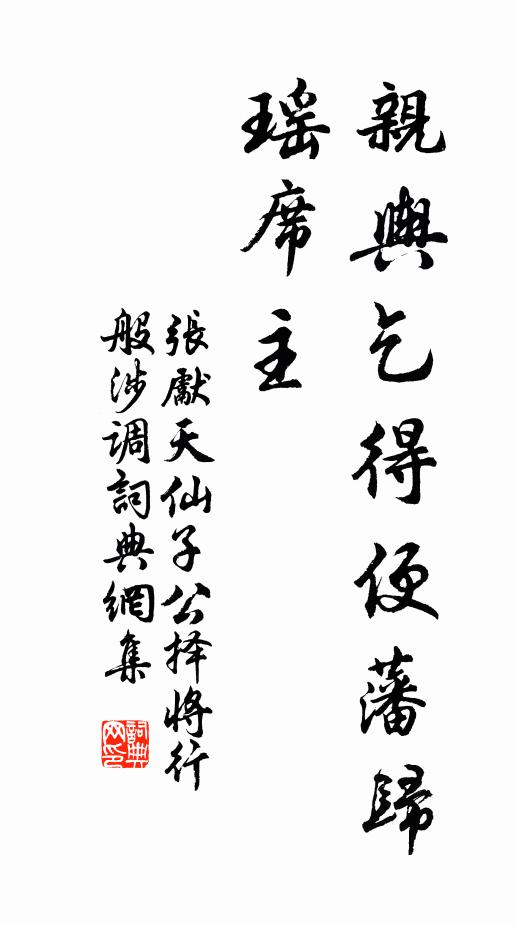 親輿乞得便藩歸
瑶席主
張獻天仙子公择将行
般涉调詞典網集
詞典网印